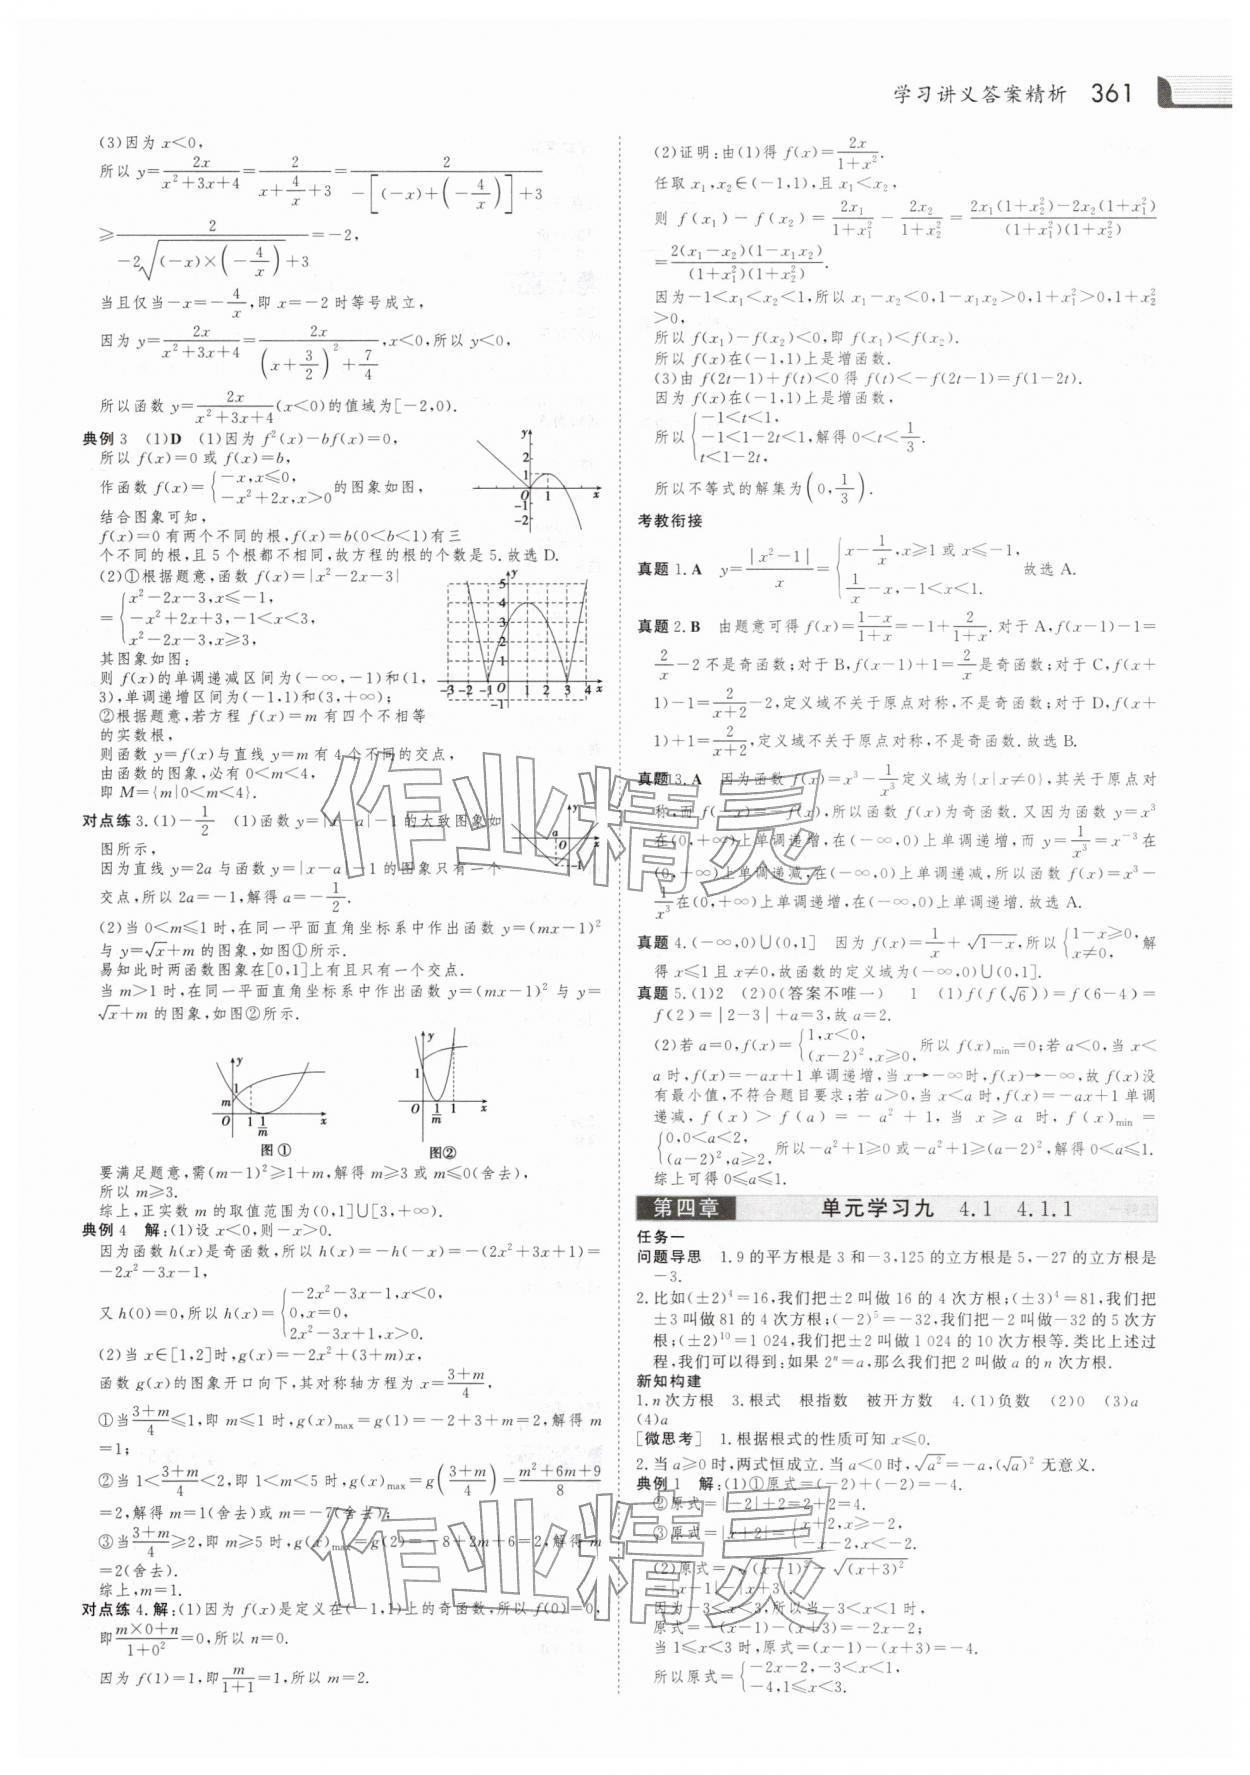 学习讲义答案精析 361
(3)因为 x<0,
所以 y=2x/(x²+3x+4)=2/(x+4/x+3)=2/(-[(-x)+(-4/x)]+3)
≥2/(-2√((-x)×(-4/x))+3)=-2,
当且仅当-x=-4/x,即 x=-2 时等号成立,
因为 y=2x/(x²+3x+4)=2x/((x+3/2)²+7/4),x<0,所以 y<0,
所以函数 y=2x/(x²+3x+4)(x<0)的值域为[-2,0).
典例 3 (1)D (1)因为 f²(x)-bf(x)=0,
所以 f(x)=0 或 f(x)=b,
作函数 f(x)={-x,x≤0, -x²+2x,x>0的图象如图,
结合图象可知,
f(x)=0 有两个不同的根,f(x)=b(0<b<1)有三
个不同的根,且 5 个根都不相同,故方程的根的个数是 5.故选 D.
(2)①根据题意,函数 f(x)=|x²-2x-3|
={x²-2x-3,x≤-1, -x²+2x+3,-1<x<3, x²-2x-3,x≥3,
其图象如图:
则 f(x)的单调递减区间为(-∞,-1)和(1,
3),单调递增区间为(-1,1)和(3,+∞);
②根据题意,若方程 f(x)=m 有四个不相等
的实数根,
则函数 y=f(x)与直线 y=m 有 4 个不同的交点,
由函数的图象,必有 0<m<4,
即 M={m|0<m<4}.
对点练 3.(1)-1/2 (1)函数 y=|x-a|-1 的大致图象如
图所示,
因为直线 y=2a 与函数 y=|x-a|-1 的图象只有一个
交点,所以 2a=-1,解得 a=-1/2.
(2)当 0<m≤1 时,在同一平面直角坐标系中作出函数 y=(mx-1)²
与 y=√x+m 的图象,如图①所示.
易知此时两函数图象在[0,1]上有且只有一个交点.
当 m>1 时,在同一平面直角坐标系中作出函数 y=(mx-1)² 与 y=
√x+m 的图象,如图②所示.
图① 图②
要满足题意,需(m-1)²≥1+m,解得 m≥3 或 m≤0(舍去).
所以 m≥3.
综上,正实数 m 的取值范围为(0,1]∪[3,+∞).
典例 4 解:(1)设 x<0,则-x>0.
因为函数 h(x)是奇函数,所以 h(x)=-h(-x)=-(2x²+3x+1)=
-2x²-3x-1,
又 h(0)=0,所以 h(x)={-2x²-3x-1,x<0, 0,x=0, 2x²-3x+1,x>0.
(2)当 x∈[1,2]时,g(x)=-2x²+(3+m)x,
函数 g(x)的图象开口向下,其对称轴方程为 x=(3+m)/4,
①当(3+m)/4≤1,即 m≤1 时,g(x)max=g(1)=-2+3+m=2,解得 m
=1;
②当 1<(3+m)/4<2,即 1<m<5 时,g(x)max=g((3+m)/4)=(m²+6m+9)/8
=2,解得 m=1(舍去)或 m=-7(舍去);
③当(3+m)/4≥2,即 m≥5 时,g(x)max=g(2)=-8+2m+6=2,解得 m
=2(舍去).
综上,m=1.
对点练 4.解:(1)因为 f(x)是定义在(-1,1)上的奇函数,所以 f(0)=0,
即(m×0+n)/(1+0²)=0,所以 n=0.
因为 f(1)=1,即m/(1+1)=1,所以 m=2.
(2)证明:由(1)得 f(x)=2x/(1+x²).
任取 x₁,x₂∈(-1,1),且 x₁<x₂,
则 f(x₁)-f(x₂)=2x₁/(1+x₁²)-2x₂/(1+x₂²)=(2x₁(1+x₂²)-2x₂(1+x₁²))/((1+x₁²)(1+x₂²))
=2(x₁-x₂)(1-x₁x₂)/((1+x₁²)(1+x₂²)).
因为-1<x₁<x₂<1,所以 x₁-x₂<0,1-x₁x₂>0,1+x₁²>0,1+x₂²
>0,
所以 f(x₁)-f(x₂)<0,即 f(x₁)<f(x₂).
所以 f(x)在(-1,1)上是增函数.
(3)由 f(2t-1)+f(t)<0 得 f(t)<-f(2t-1)=f(1-2t).
因为 f(x)在(-1,1)上是增函数,
所以{-1<t<1, -1<1-2t<1, t<1-2t,解得 0<t<1/3.
所以不等式的解集为(0,1/3).
考教衔接
真题 1.A y=|x²-1|/x={x-1/x,x≥1 或 x≤-1, 1/x-x,-1<x<1.故选 A.
真题 2.B 由题意可得 f(x)=(1-x)/(1+x)=-1+2/(1+x).对于 A,f(x-1)-1=
2/x-2 不是奇函数;对于 B,f(x-1)+1=2/x是奇函数;对于 C,f(x+
1)-1=2/(x+2)-2,定义域不关于原点对称,不是奇函数;对于 D,f(x+
1)+1=2/(x+2),定义域不关于原点对称,不是奇函数.故选 B.
真题 3.A 因为函数 f(x)=x³-1/x³定义域为{x|x≠0},其关于原点对
称,而 f(-x)=-f(x),所以函数 f(x)为奇函数.又因为函数 y=x³
在(0,+∞)上单调递增,在(-∞,0)上单调递增,而 y=1/x³=x⁻³在
(0,+∞)上单调递减,在(-∞,0)上单调递减,所以函数 f(x)=x³-
1/x³在(0,+∞)上单调递增,在(-∞,0)上单调递增.故选 A.
真题 4.(-∞,0)∪(0,1] 因为 f(x)=1/x+√(1-x),所以{1-x≥0, x≠0,解
得 x≤1 且 x≠0,故函数的定义域为(-∞,0)∪(0,1].
真题 5.(1)2 (2)0(答案不唯一) 1 (1)f(f(√6))=f(6-4)=
f(2)=|2-3|+a=3,故 a=2.
(2)若 a=0,f(x)={1,x<0, (x-2)²,x≥0,所以 f(x)min=0;若 a<0,当 x<
a 时,f(x)=-ax+1 单调递增,当 x→-∞时,f(x)→-∞,故 f(x)没
有最小值,不符合题目要求;若 a>0,当 x<a 时,f(x)=-ax+1 单调
递减,f(x)>f(a)=-a²+1,当 x≥a 时,f(x)min=
{0,0<a<2, (a-2)²,a≥2,所以-a²+1≥0 或-a²+1≥(a-2)²,解得 0<a≤1.
综上可得 0≤a≤1.
第四章 单元学习九 4.1 4.1.1
任务一
问题导思 1.9 的平方根是 3 和-3,125 的立方根是 5,-27 的立方根是
-3.
2.比如(±2)⁴=16,我们把±2 叫做 16 的 4 次方根;(±3)⁴=81,我们把
±3 叫做 81 的 4 次方根;(-2)⁵=-32,我们把-2 叫做-32 的 5 次方
根;(±2)¹⁰=1 024,我们把±2 叫做 1 024 的 10 次方根等.类比上述过
程,我们可以得到:如果 2ⁿ=a,那么我们把 2 叫做 a 的 n 次方根.
新知构建
1.n 次方根 3.根式 根指数 被开方数 4.(1)负数 (2)0 (3)a
(4)a
[微思考] 1.根据根式的性质可知 x≤0.
2.当 a≥0 时,两式恒成立.当 a<0 时,√a²=-a,(√a)² 无意义.
典例 1 解:(1)①原式=(-2)+(-2)=-4.
②原式=|-2|+2=2+2=4.
③原式=|x+2|={x+2,x≥-2, -x-2,x<-2.
(2)原式=√(x-1)²-√(x+3)²
=|x-1|-|x+3|.
因为-3<x<3,所以当-3<x<1 时,
原式=-(x-1)-(x+3)=-2x-2;
当 1≤x<3 时,原式=(x-1)-(x+3)=-4.
所以原式={-2x-2,-3<x<1, -4,1≤x<3.
作业精灵
作业精灵